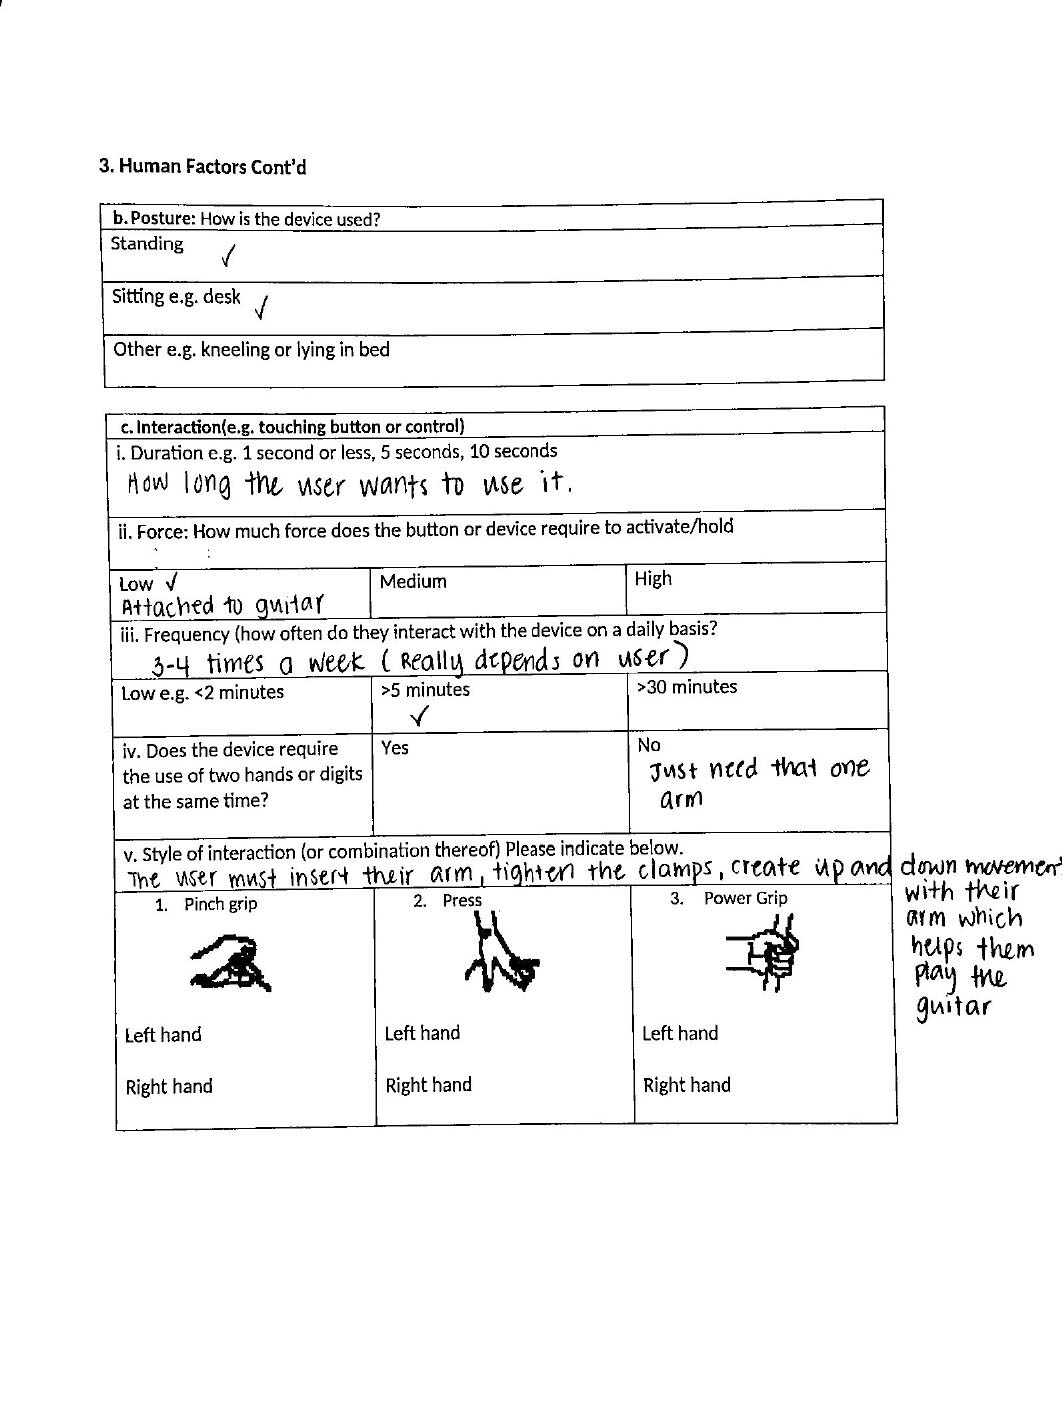 3. Human Factors Cont'd
b. Posture: How is the device used?
Standing ✓
Sitting e.g. desk ✓
Other e.g. kneeling or lying in bed
c. Interaction(e.g. touching button or control)
i. Duration e.g. 1 second or less, 5 seconds, 10 seconds
How long the user wants to use it.
ii. Force: How much force does the button or device require to activate/hold
Low ✓
Attached to guitar
Medium
High
iii. Frequency (how often do they interact with the device on a daily basis?
3-4 times a week (Really depends on user)
Low e.g. <2 minutes
>5 minutes
✓
>30 minutes
iv. Does the device require
the use of two hands or digits
at the same time?
Yes
No
Just need that one
arm
v. Style of interaction (or combination thereof) Please indicate below.
The user must insert their arm, tighten the clamps, create up and down movement
with their
arm which
helps them
play the
guitar
1. Pinch grip
Left hand
Right hand
2. Press
Left hand
Right hand
3. Power Grip
Left hand
Right hand